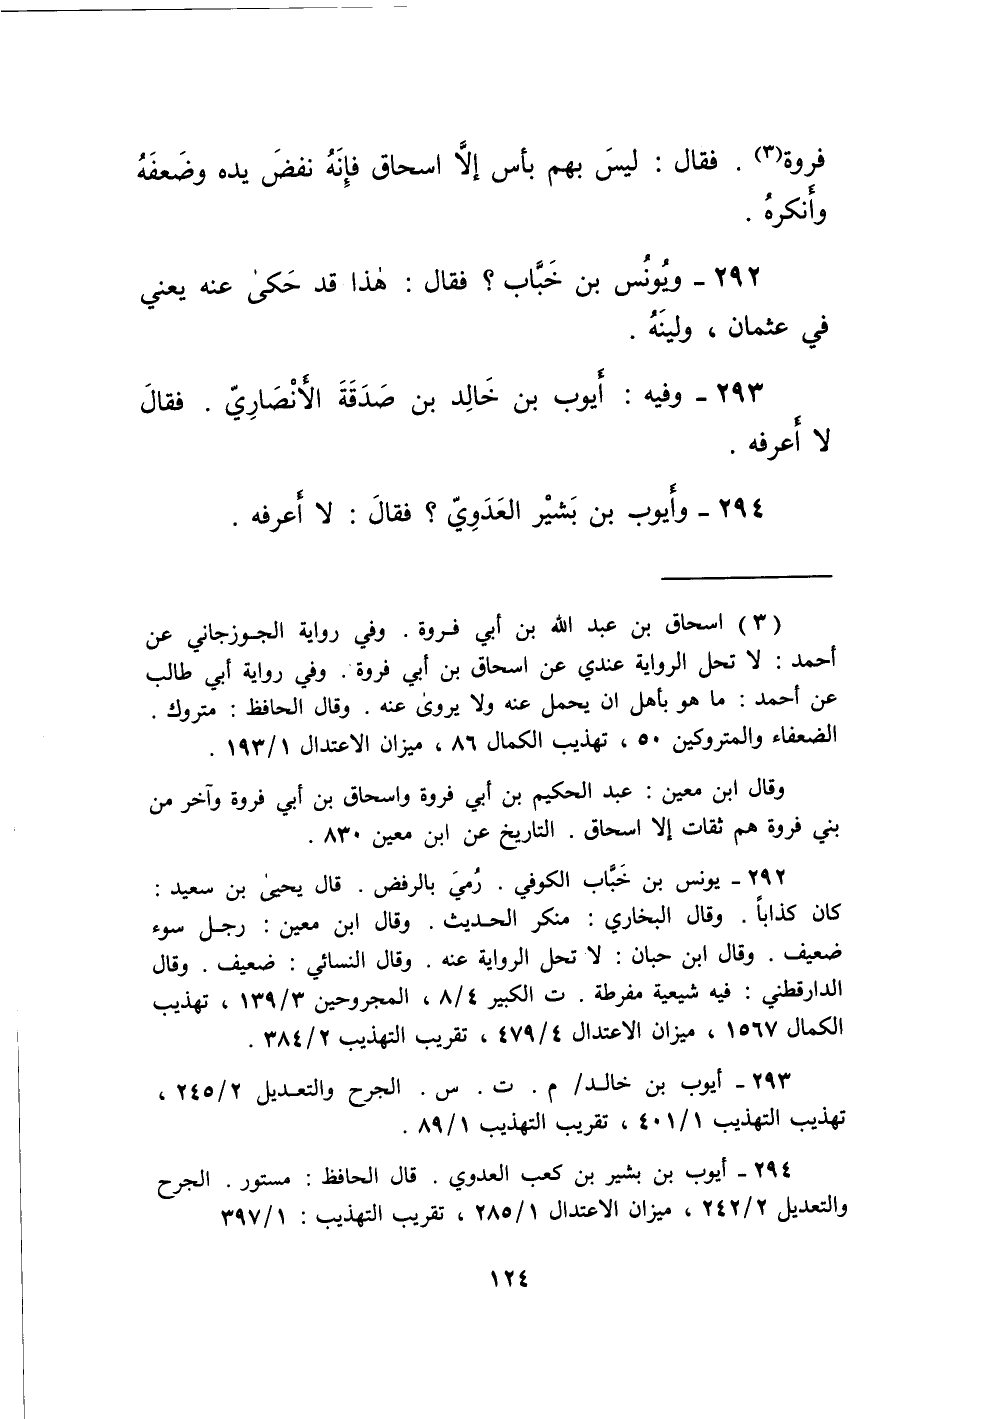 فروة(٣) . فقال : ليسَ بهم بأس إلَّا اسحاق فإِنَهُ نفضَ يده وضَعفَهُ
وأَنكرهُ .
٢٩٢ ـ ويُونُس بن خَبَّاب ؟ فقال : هٰذا قد حَكىٰ عنه يعني
في عثمان ، ولينَهُ .
٢٩٣ ـ وفيه : أَيوب بن خَالِد بن صَدَقَةَ الأَنْصَارِيّ . فقالَ
لا أَعرفه .
٢٩٤ ـ وأَيوب بن بَشيْر العَدَوِيّ ؟ فقالَ : لا أَعرفه .
(٣) اسحاق بن عبد الله بن أبي فروة . وفي رواية الجوزجاني عن
أحمد : لا تحل الرواية عندي عن اسحاق بن أبي فروة . وفي رواية أبي طالب
عن أحمد : ما هو بأهل ان يحمل عنه ولا يروىٰ عنه . وقال الحافظ : متروك .
الضعفاء والمتروكين ٥٠ ، تهذيب الكمال ٨٦ ، ميزان الاعتدال ١٩٣/١ .
وقال ابن معين : عبد الحكيم بن أبي فروة واسحاق بن أبي فروة وآخر من
بني فروة هم ثقات إلا اسحاق . التاريخ عن ابن معين ٨٣٠ .
٢٩٢ ـ يونس بن خَبَّاب الكوفي . رُميَ بالرفض . قال يحيىٰ بن سعيد :
كان كذاباً . وقال البخاري : منكر الحديث . وقال ابن معين : رجل سوء
ضعيف . وقال ابن حبان : لا تحل الرواية عنه . وقال النسائي : ضعيف . وقال
الدارقطني : فيه شيعية مفرطة . ت الكبير ٨/٤ ، المجروحين ١٣٩/٣ ، تهذيب
الكمال ١٥٦٧ ، ميزان الاعتدال ٤٧٩/٤ ، تقريب التهذيب ٣٨٤/٢ .
٢٩٣ ـ أيوب بن خالد/ م . ت . س . الجرح والتعديل ٢٤٥/٢ ،
تهذيب التهذيب ٤٠١/١ ، تقريب التهذيب ٨٩/١ .
٢٩٤ ـ أيوب بن بشير بن كعب العدوي . قال الحافظ : مستور . الجرح
والتعديل ٢٤٢/٢ ، ميزان الاعتدال ٢٨٥/١ ، تقريب التهذيب : ٣٩٧/١
١٢٤